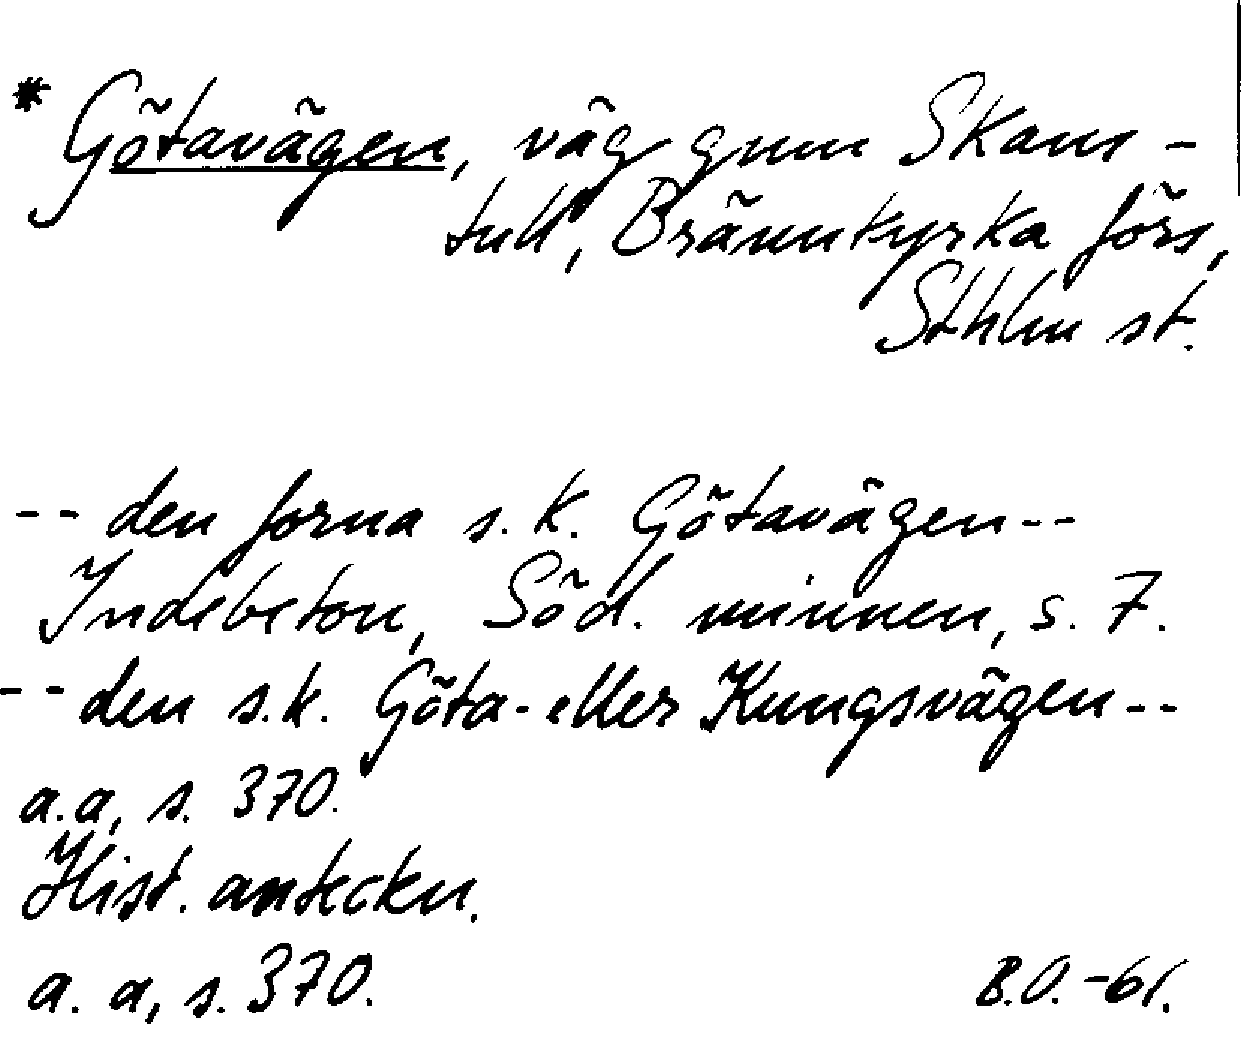 * Götavägen, väg gnm Skans-
tull, Brännkyrka förs,
Sthlm st.
-- den forna s.k. Götavägen --
Indebetou, Söd. minnen, s. 7.
-- den s.k. Göta- eller Kungsvägen --
a.a, s. 370.
Hist. anteckn.
a. a, s. 370.
B.O. -61.